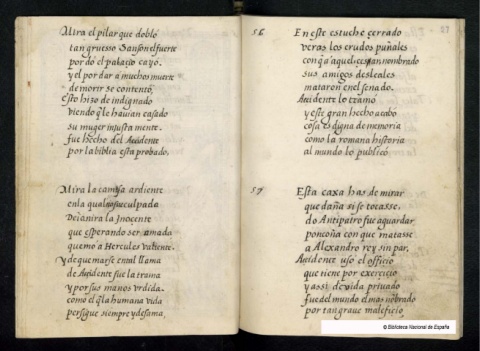 Mira el pilar que doblo
tan gruesso Sanson el fuerte
por do el palacio cayo.
y el por dar a muchos muerte
de morir se contento,
esto hizo de indignado
viendo q̃ le hauian casado
su muger injustamente.
fue hecho del Accidente
por la biblia esta probado.
Mira la camisa ardiente
en la qual no fue culpada
Deianira la Jnocente
que esperando ser amada
quemo a Hercules valiente.
Y de que marse en tal llama
de Accidente fue la trama
y por sus manos vrdida.
como el q̃ la humana vida
persigue siempre y desama,
27
56
En este estuche çerrado
veras los crudos puñales
con q̃ a aquel çesar nombrado
sus amigos desleales
mataron en el senado.
Accidente lo tramo
y este gran hecho acabo
cosa es digna de memoria
como la romana historia
al mundo lo publico
57
Esta caxa has de mirar
que daña si se tocasse.
do Antipatro fue a guardar
ponçoña con que matasse
a Alexandro rey sin par,
Accidente uso el officio
que tiene por exercicio
y assi de vida privado
fue del mundo el mas nõbrado
por tan graue maleficio
© Biblioteca Nacional de España